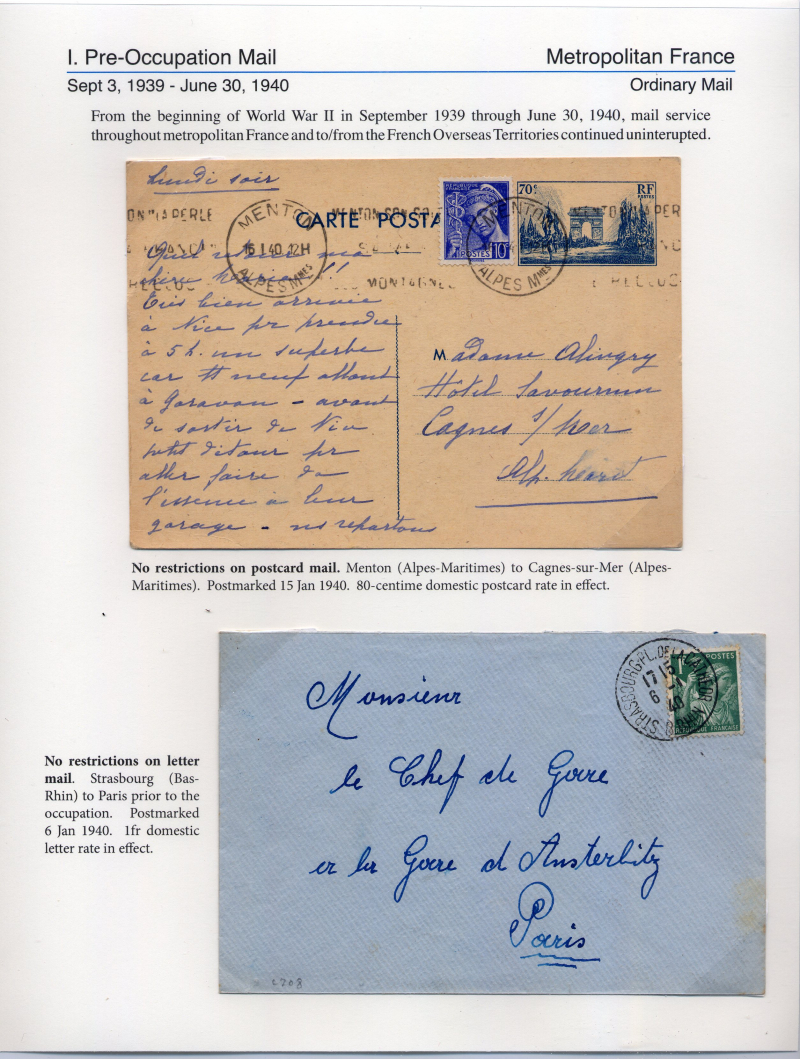 I. Pre-Occupation Mail
Metropolitan France
Sept 3, 1939 - June 30, 1940
Ordinary Mail
From the beginning of World War II in September 1939 through June 30, 1940, mail service
throughout metropolitan France and to/from the French Overseas Territories continued uninterupted.
Lundi soir
CARTE POSTA
MENTON
15 I.40 12H
ALPES MMES
REPUBLIQUE FRANCAISE
POSTES
10c
MENTON
ALPES MMES
70c
RF
POSTES
MONTAGNE
Très bien arrivée
à Nice pr prendre
à 5 h. un superbe
car tt neuf allant
à Garavan – avant
de sortir de Nice
petit détour pr
aller faire de
l'essence à leur
garage – ns repartons
Madame Alivgry
Hôtel Savournin
Cagnes s/ Mer
Alp. Marit
No restrictions on postcard mail. Menton (Alpes-Maritimes) to Cagnes-sur-Mer (Alpes-
Maritimes). Postmarked 15 Jan 1940. 80-centime domestic postcard rate in effect.
STRASBOURG-PL. DE LA CATHEDR
17 15
6 -1
40
BAS RHIN
1F
POSTES
Monsieur
le Chef de Gare
de la Gare d'Austerlitz
Paris
No restrictions on letter
mail. Strasbourg (Bas-
Rhin) to Paris prior to the
occupation. Postmarked
6 Jan 1940. 1fr domestic
letter rate in effect.